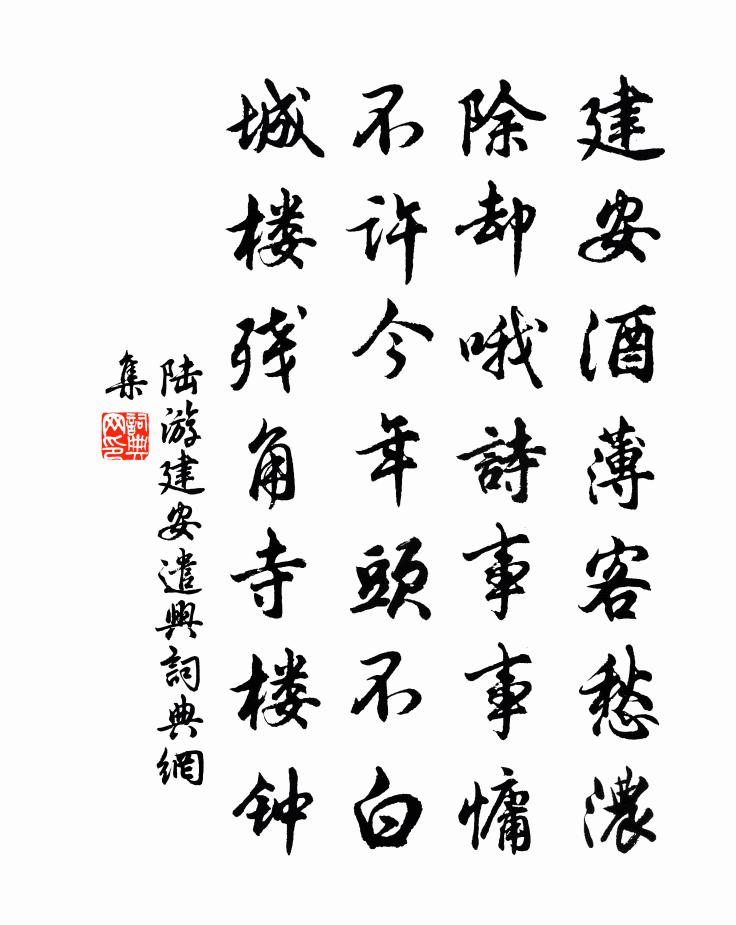 建安酒薄客愁濃
除却哦詩事事慵
不許今年頭不白
城楼残角寺楼钟
陆游建安遣興詞典網
集
詞典
网印